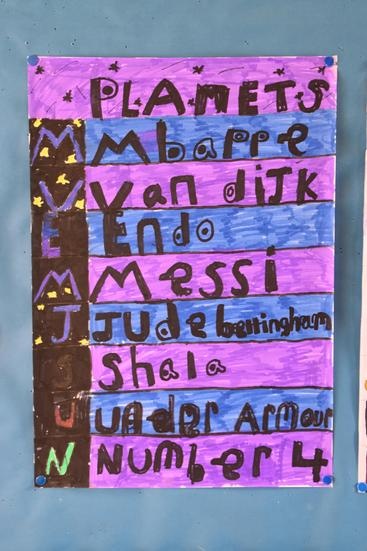 PLANETS
M Mbappe
V Van dijk
E Endo
M Messi
J JUde bellingham
S Shala
U UNder Armour
N NUMber 4